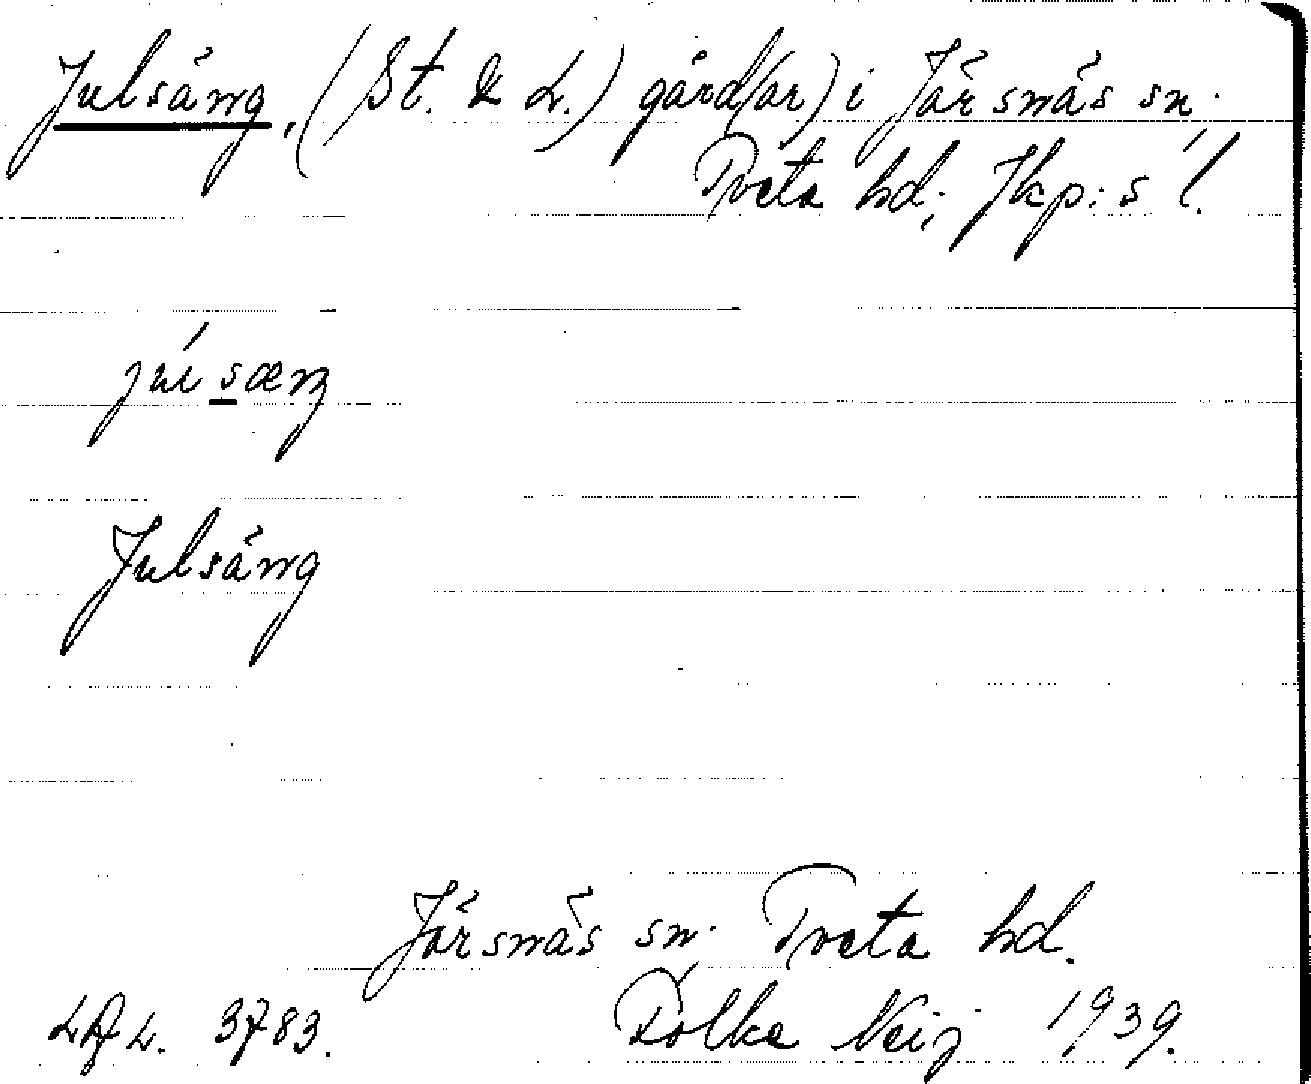 Julsäng, (St. & L.) gård(ar) i Järsnäs sn.
Tveta hd; Jkp:s l.
júlsæŋ
Julsäng
Järsnäs sn. Tveta hd.
3783. Folke Neij 1939.